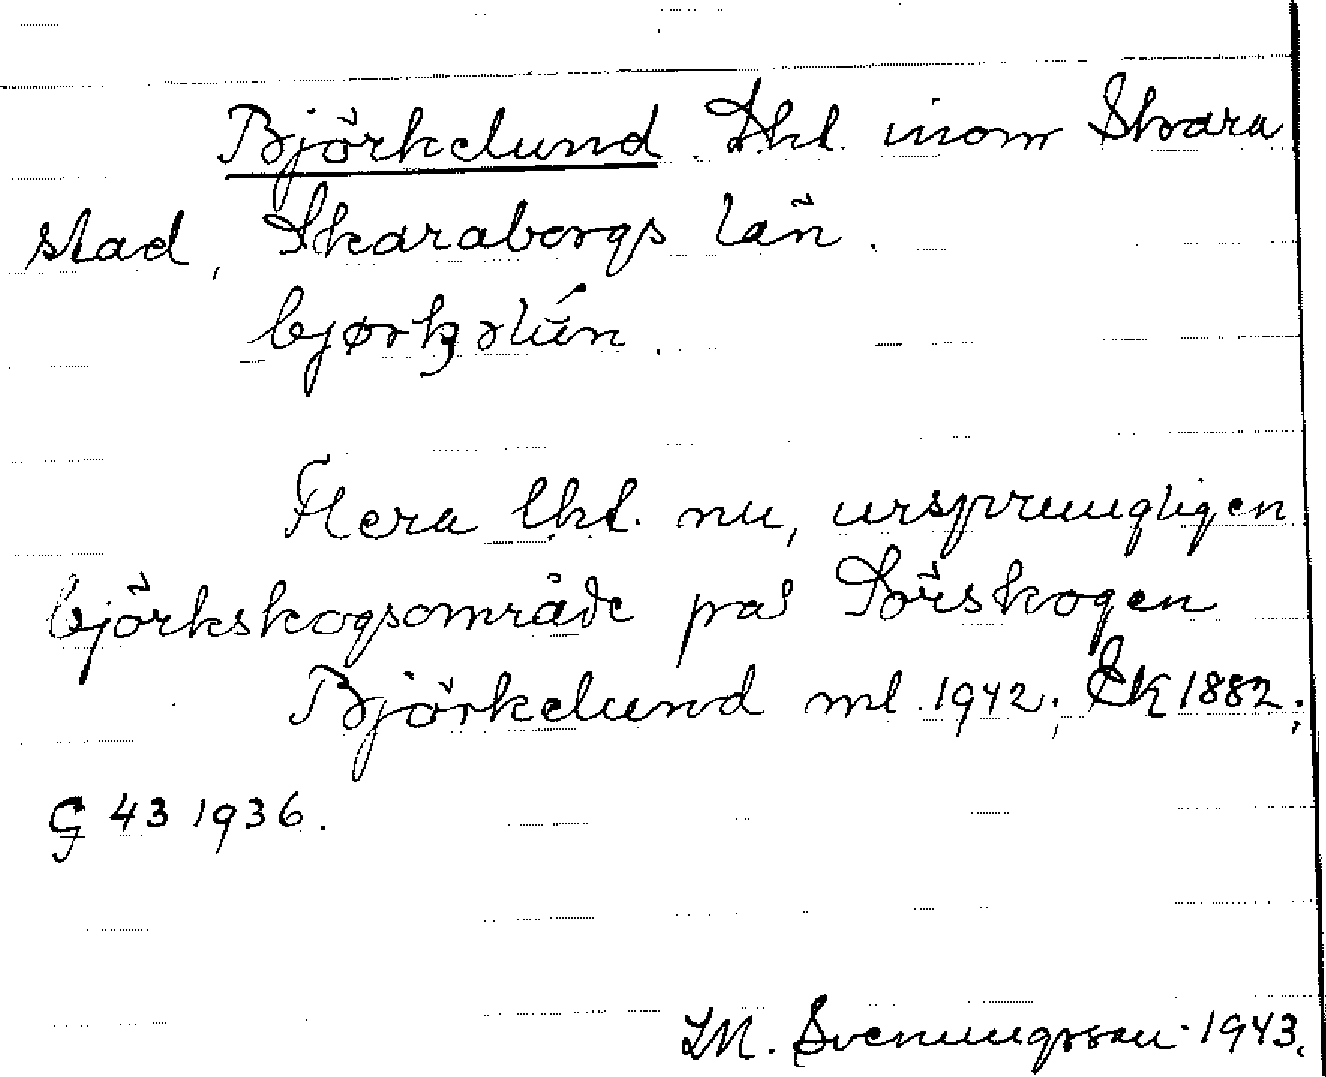 Björkelund Lhl. inom Skara
stad, Skaraborgs län.
Flera lhl. nu, ursprungligen
björkskogsområde på Sörskogen
Björkelund ml. 1942; EK 1882;
G 43 1936.
I.M. Svenungsson 1943.